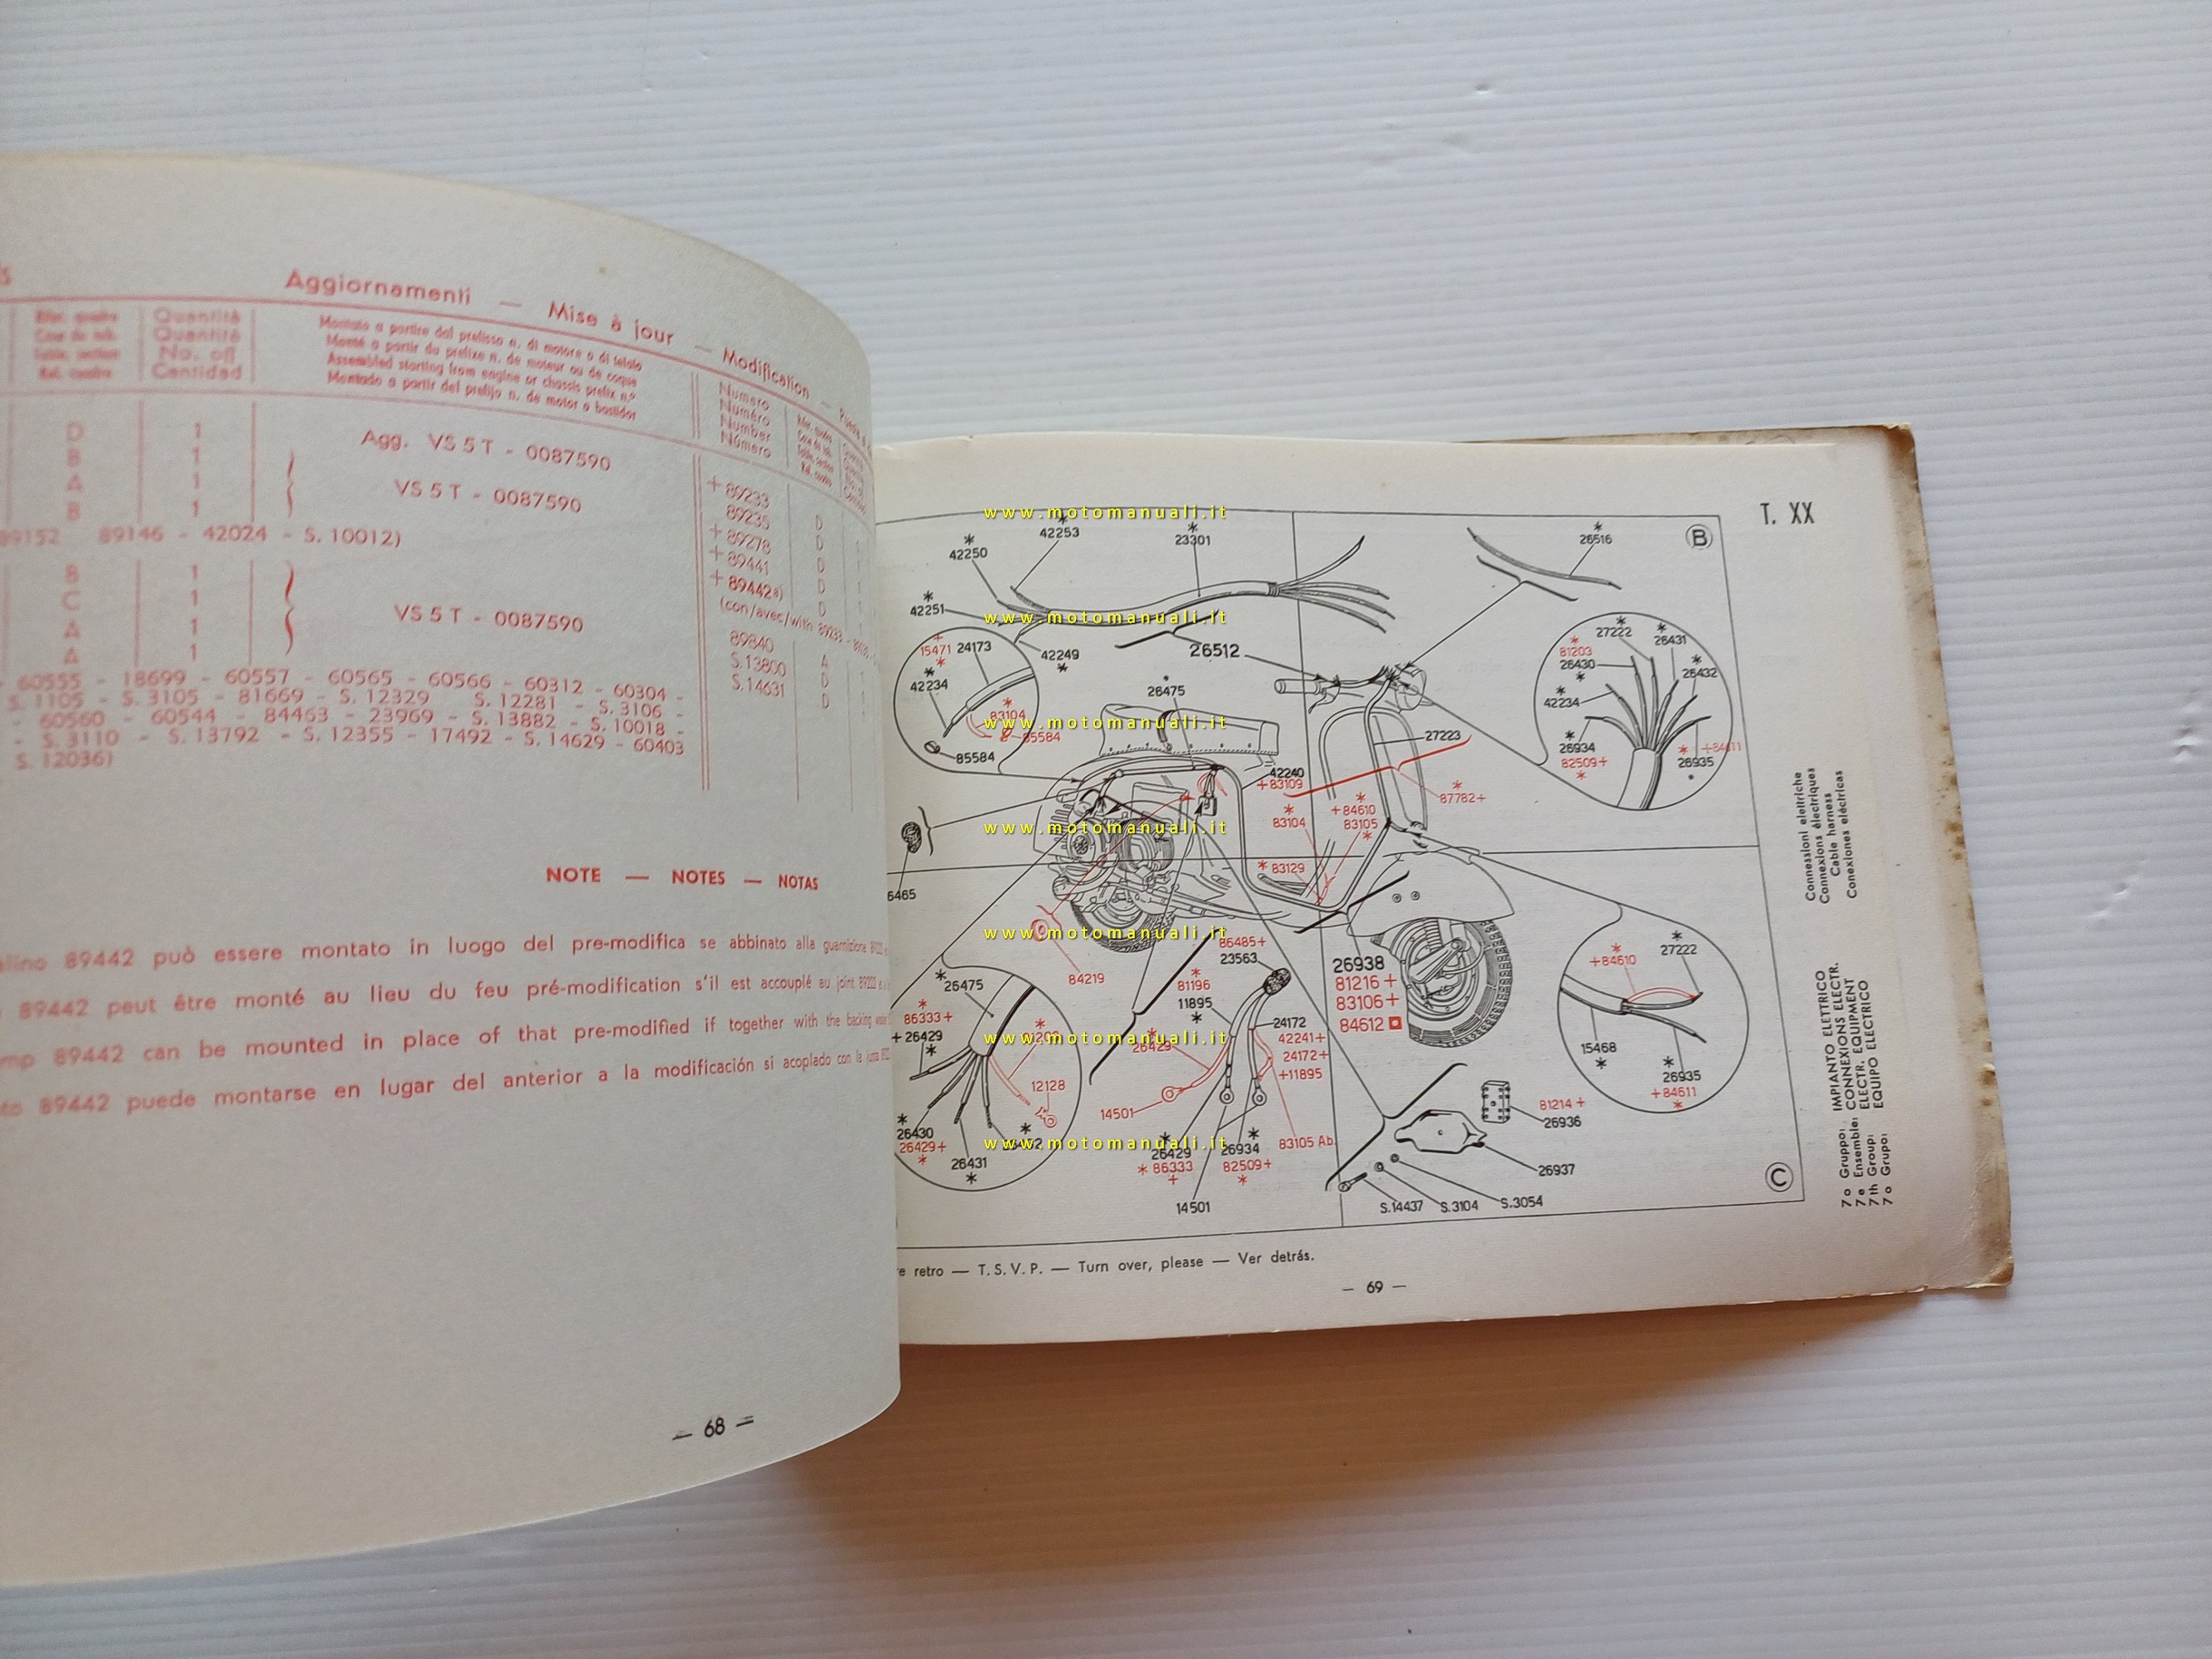 Aggiornamenti — Mise à jour — Modification —
Quantità
Quantité
No. off
Cantidad
Montato a partire dal prefisso n. di motore o di telaio
Monté a partir du prefixe n. de moteur ou de coque
Assembled starting from engine or chassis prefix n.º
Montado a partir del prefijo n. de motor o bastidor
Numero
Numéro
Number
Número
D 1
B 1
A 1
B 1
Agg. VS 5 T - 0087590
VS 5 T - 0087590
89152 89146 - 42024 - S. 10012)
B 1
C 1
A 1
A 1
VS 5 T - 0087590
- 60555 - 18699 - 60557 - 60565 - 60566 - 60312 - 60304 -
S. 1105 - S. 3105 - 81669 - S. 12329 S. 12281 - S. 3106 -
- 60560 - 60544 - 84463 - 23969 - S. 13882 - S. 10018 -
- S. 3110 - S. 13792 - S. 12355 - 17492 - S. 14629 - 60403
S. 12036)
+ 89233 D
89235 D
+ 89278 D
+ 89441 D
+ 89442 a) D
(con/avec/with 89233 -
89840 A
S.13800 D
S.14631 D
NOTE — NOTES — NOTAS
89442 può essere montato in luogo del pre-modifica se abbinato alla guarnizione
89442 peut être monté au lieu du feu pré-modification s'il est accouplé au joint
89442 can be mounted in place of that pre-modified if together with the backing
89442 puede montarse en lugar del anterior a la modificación si acoplado con la junta
— 68 —
T. XX
B
www.motomanuali.it
42253
23301
42250
26516
42251
www.motomanuali.it
15471
24173
42249
26512
42234
26475
83104
85584
85584
www.motomanuali.it
27222
26431
81203
26430
26432
42234
26934
82509+
+84611
26935
27223
42240
+83109
87782+
83104
+84610
83105
www.motomanuali.it
83129
www.motomanuali.it
84219
86485+
23563
81196
11895
26938
81216+
83106+
84612
26475
86333+
+26429
12128
26430
26429+
26431
www.motomanuali.it
26429
24172
42241+
24172+
+11895
14501
83105 Ab.
www.motomanuali.it
26429
86333
+
26934
82509+
14501
27222
+84610
15468
26935
+84611
81214+
26936
26937
S.14437
S.3104
S.3054
C
Connessioni elettriche
Connexions électriques
Cable harness
Conexiones eléctricas
7o Gruppo: IMPIANTO ELETTRICO
7e Ensemble: CONNEXIONS ELECTR.
7th Group: ELECTR. EQUIPMENT
7o Grupo: EQUIPO ELECTRICO
retro — T.S.V.P. — Turn over, please — Ver detrás.
— 69 —